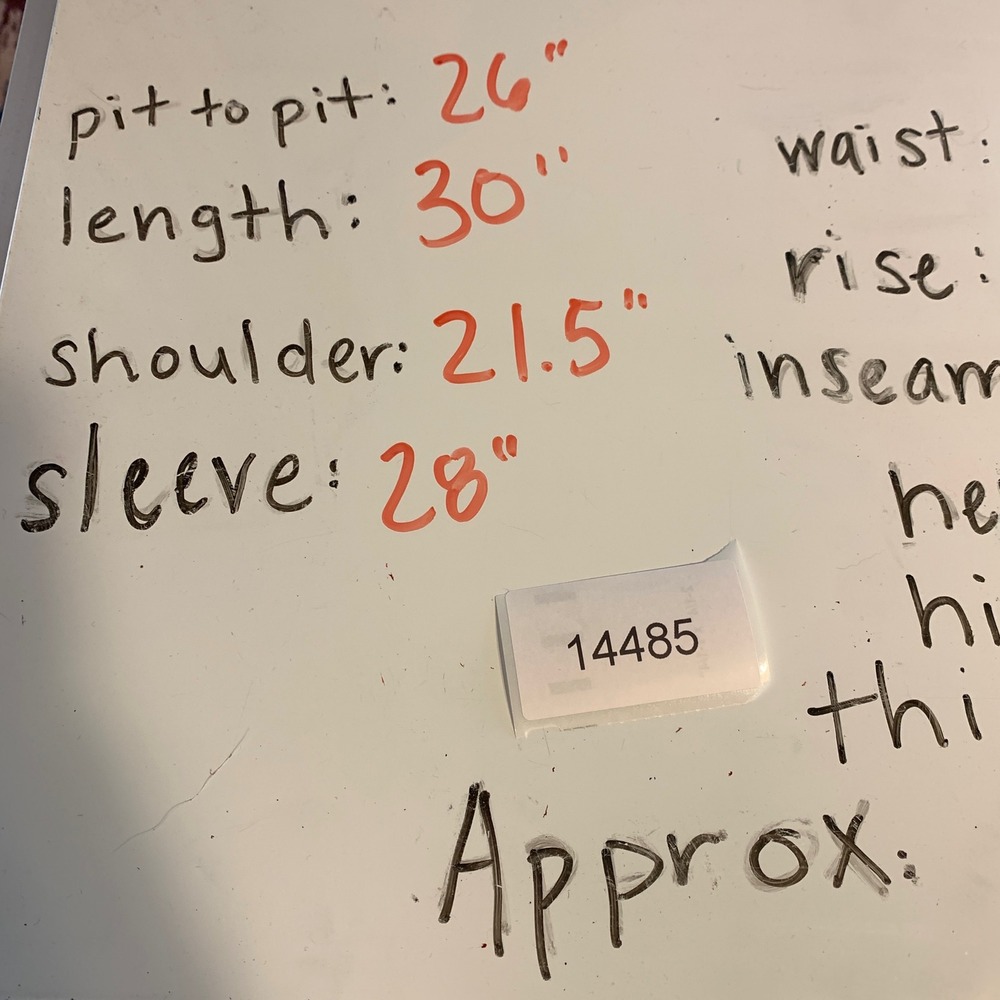 pit to pit: 26"
length: 30"
shoulder: 21.5"
sleeve: 28"
waist:
rise:
inseam
he
hi
thi
14485
Approx.